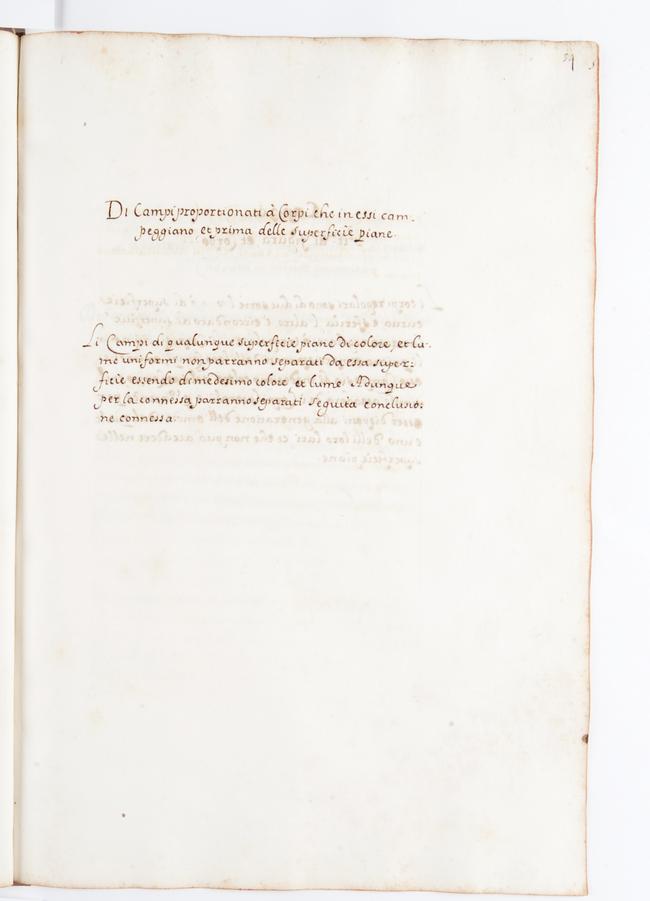 Di Campi proportionati à Corpi che in essi cam.
peggiano, et prima delle superficie piane.
Li Campi di qualunque superficie piane di colore, et lu.
me uniformi non parranno separati da essa super:
ficie essendo di medesimo colore, et lume Adunque
per la connessa parranno separati seguita conclusio:
ne connessa